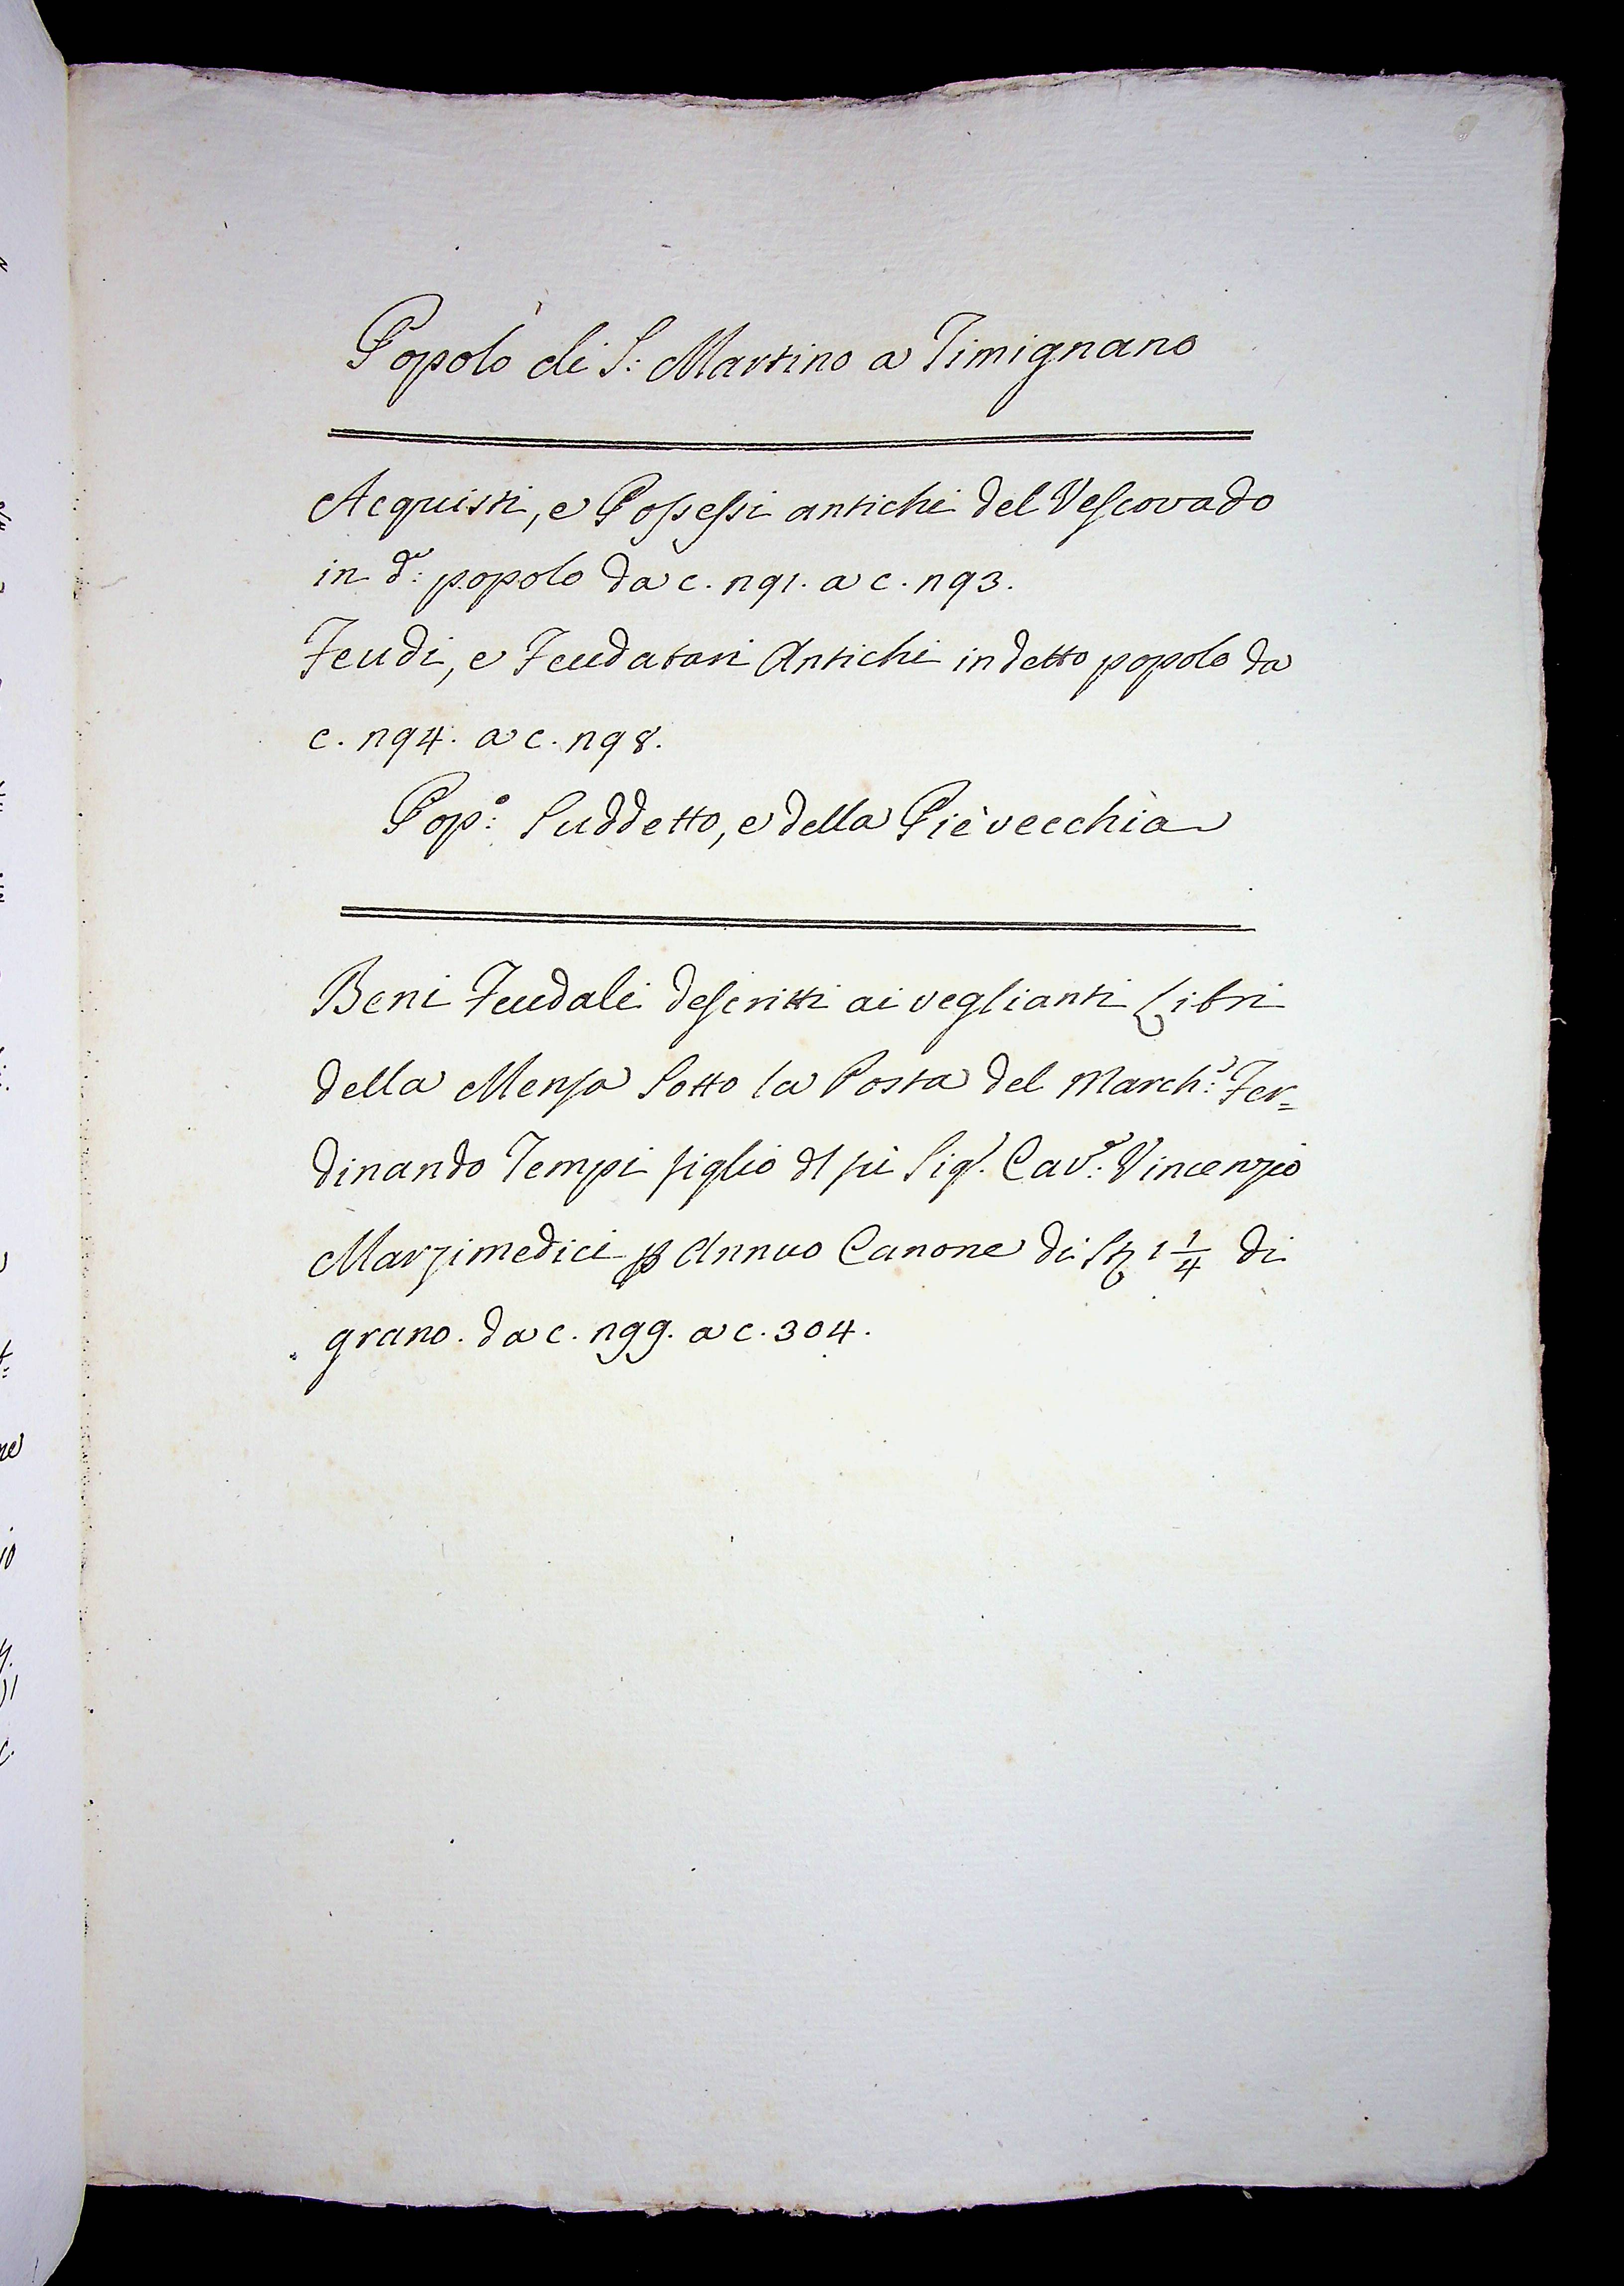 Popolo di S: Martino a Timignano
Acquisti, e Possessi antichi del Vescovado
in d.º popolo da c. 291. a c. 293.
Feudi, e Feudatari Antichi in detto popolo da
c. 294. a c. 298.
Pop.º Suddetto, e della Piè vecchia
Beni Feudali descritti ai veglianti Libri
della Mensa Sotto la Posta del March.e Fer=
dinando Tempi figlio dl fù Sig.r Cav.r Vincenzio
Marzimedici p Annuo Canone di 1 1/4 di
grano. da c. 299. a c. 304.